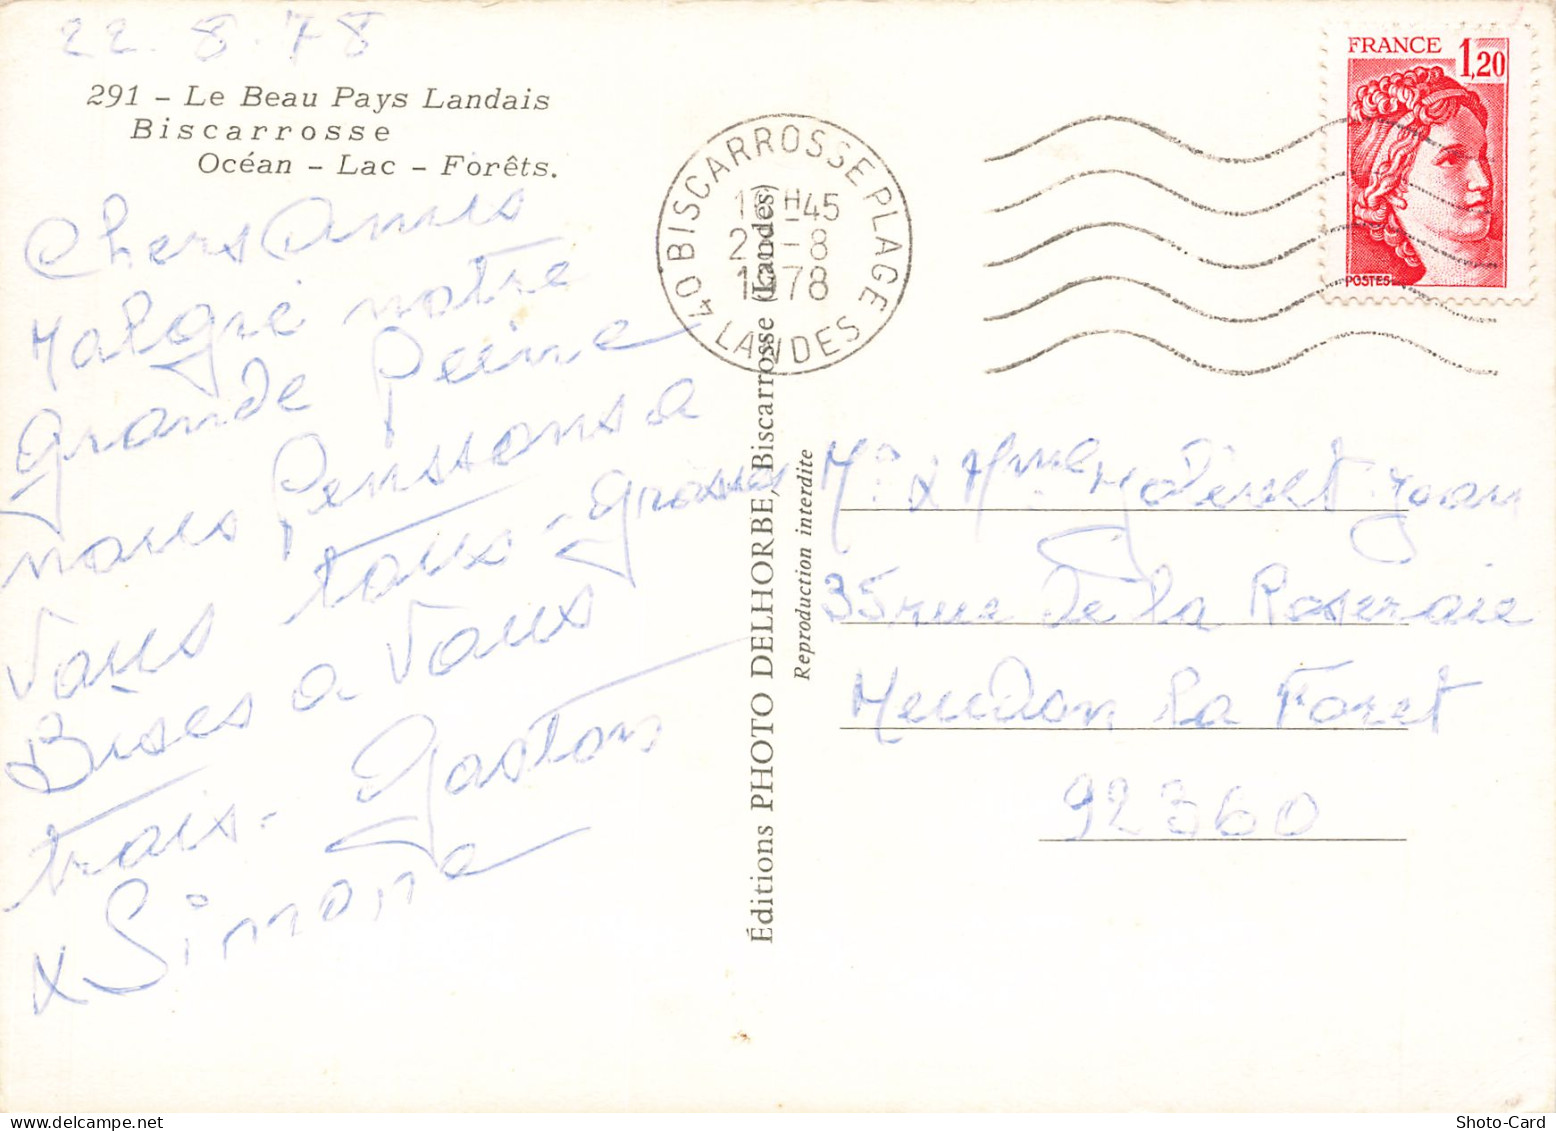 22.8.78
291 – Le Beau Pays Landais
Biscarrosse
Océan – Lac – Forêts.
Chers Amis
Malgré notre
grande peine
nous penssons a
vous tous - grosses
Bises a vous
trois - Gaston
x Simone
40 BISCARROSSE PLAGE
H-45
-8
1978
LANDES
FRANCE 1,20
POSTES
Éditions PHOTO DELHORBE, Biscarrosse (Landes)
Reproduction interdite
Mr. x Mme.
35 rue de la Roseraie
Meudon la Foret
92360
Shoto-Card